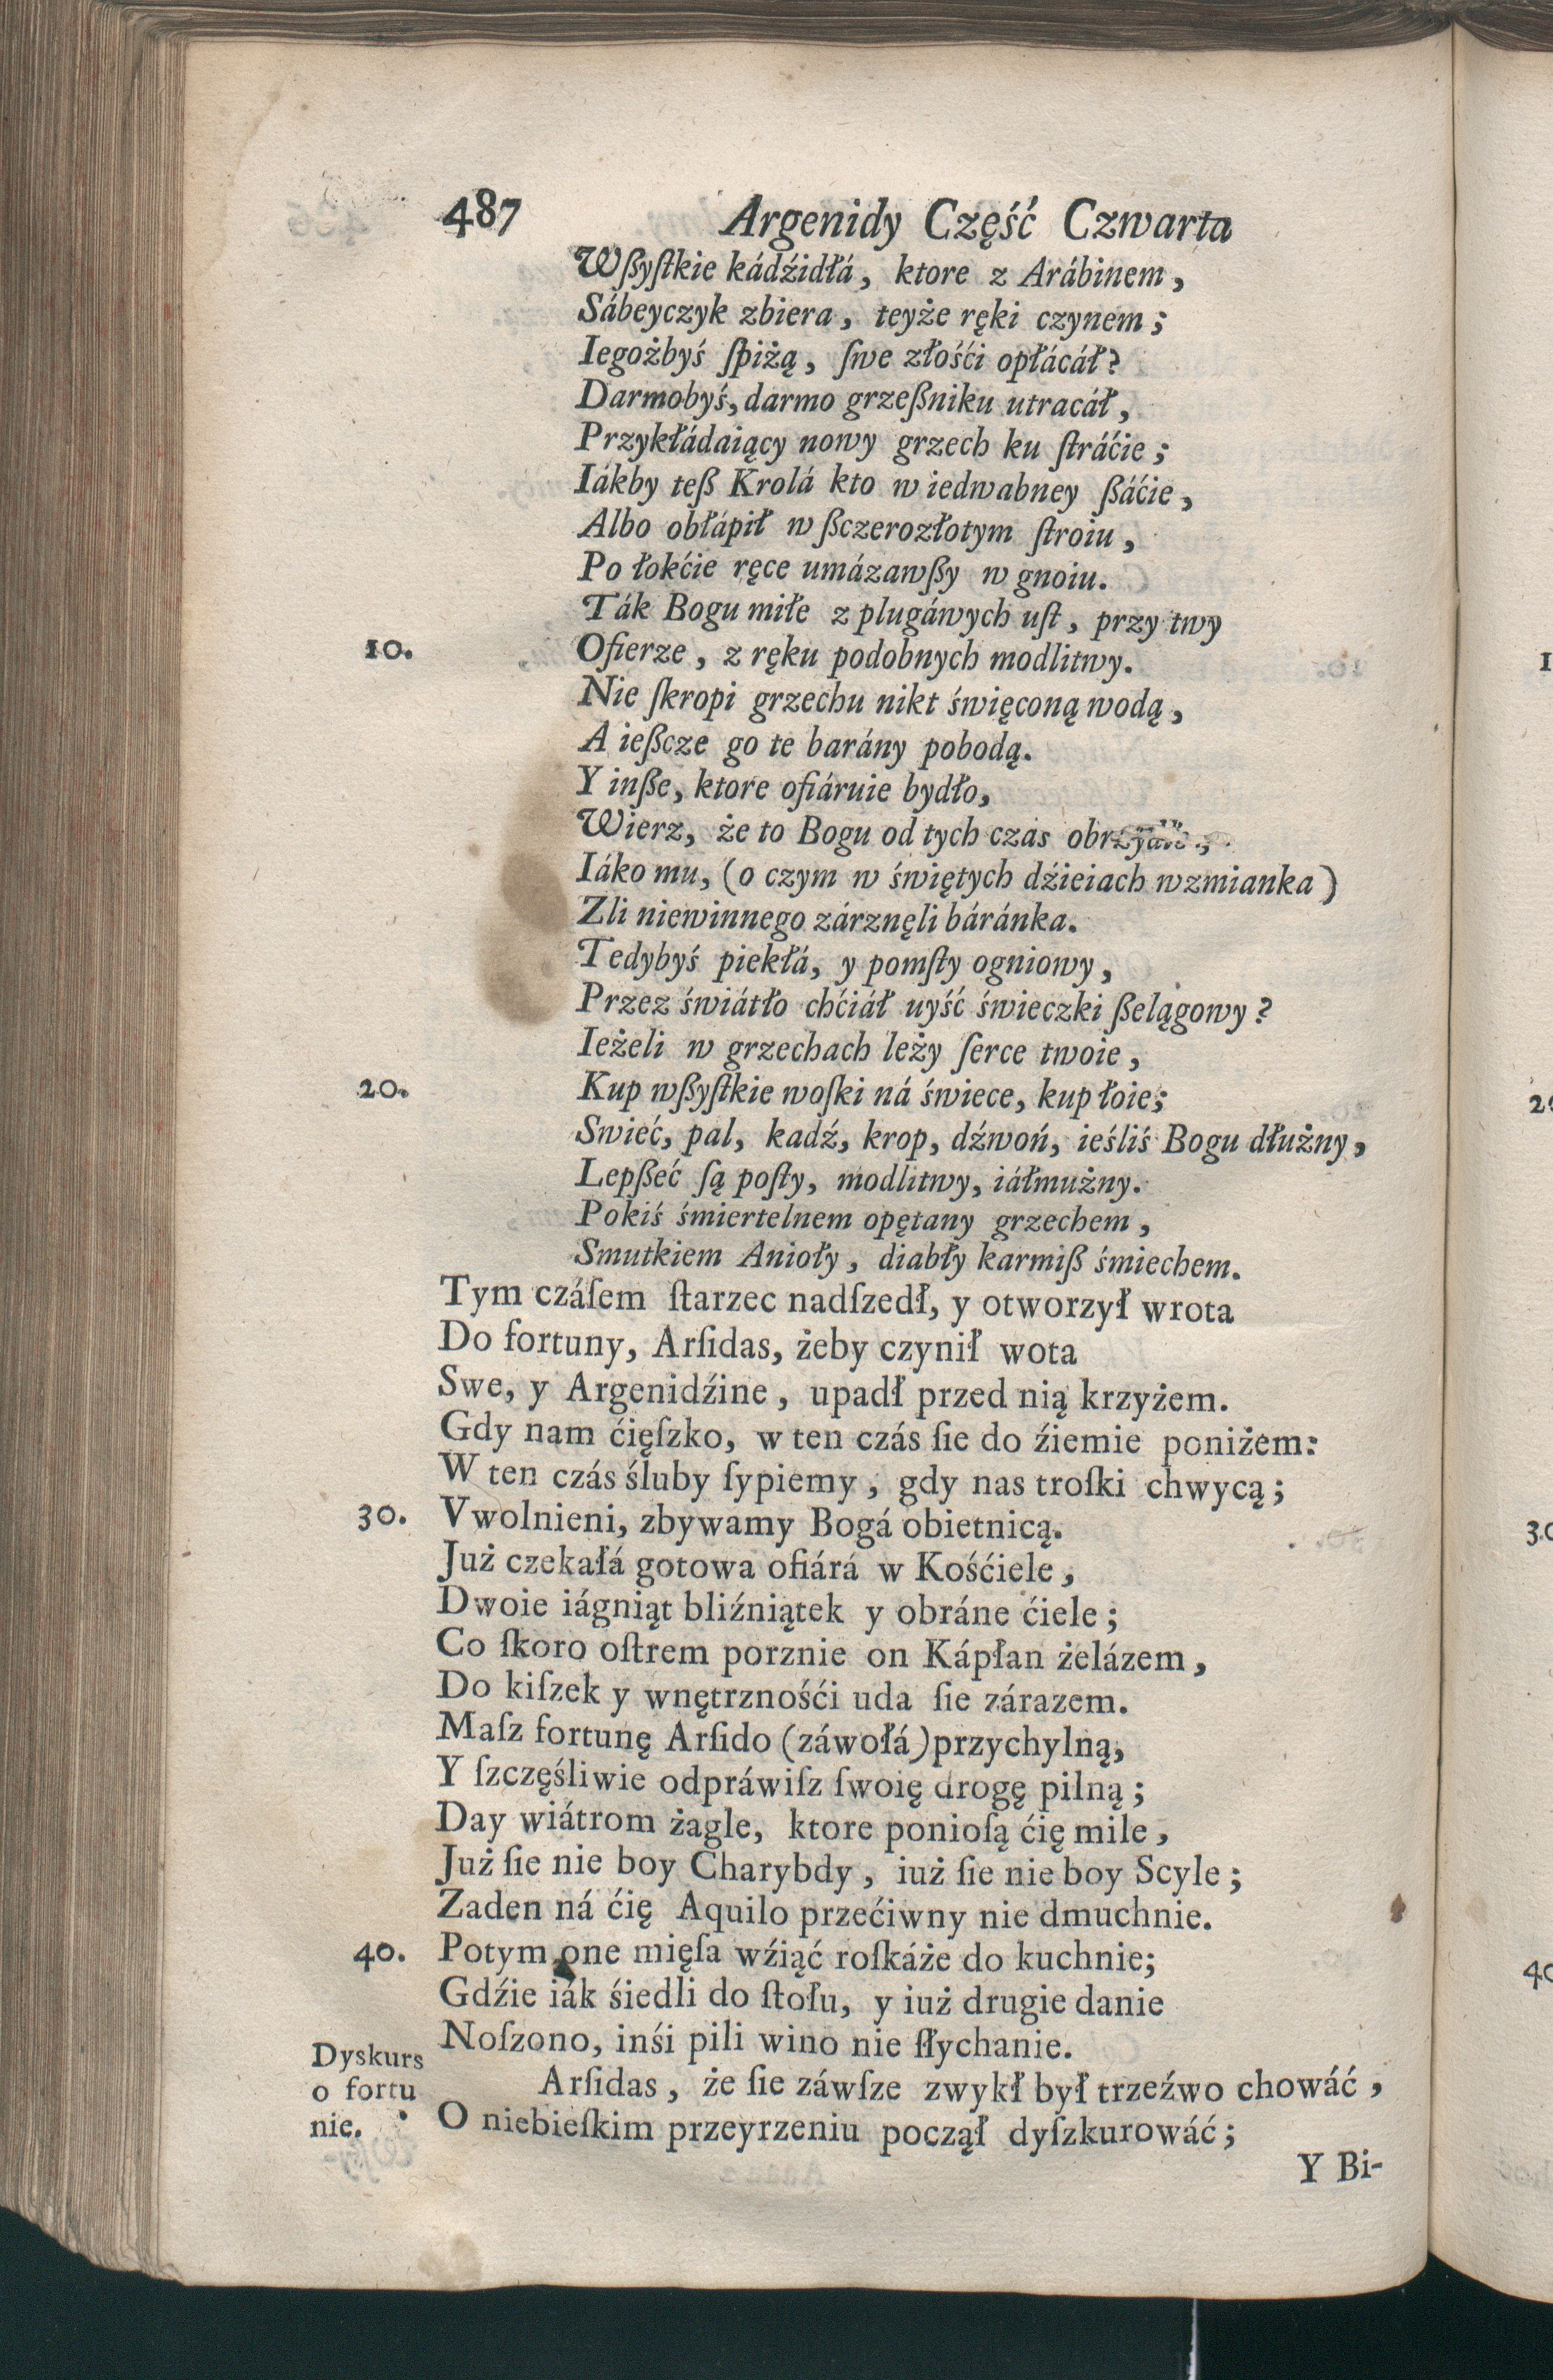 487 Argenidy Część Czwarta
Wßyſtkie kádźidłá, ktore z Arábinem,
Sábeyczyk zbiera, teyże ręki czynem;
Iegożbyś ſpiżą, ſwe złośći opłácáł?
Darmobyś, darmo grzeßniku utracáł,
Przykłádaiący nowy grzech ku ſtráćie;
Iákby teß Krolá kto w iedwabney ßáćie,
Albo obłápił w ßczerozłotym ſtroiu,
Po łokćie ręce umázawßy w gnoiu.
Ták Bogu miłe z plugáwych uſt, przy twy
10. Ofierze, z ręku podobnych modlitwy.
Nie ſkropi grzechu nikt święconą wodą,
A ießcze go te barány pobodą.
Y inße, ktore ofiáruie bydło,
Wierz, że to Bogu od tych czas
Iáko mu, (o czym w świętych dźieiach wzmianka)
Zli niewinnego zárznęli báránka.
Tedybyś piekłá, y pomſty ogniowy,
Przez świátło chćiáł uyść świeczki ßelągowy?
Ieżeli w grzechach leży ſerce twoie,
20. Kup wßyſtkie woſki ná świece, kup łoie;
Swieć, pal, kadź, krop, dźwoń, ieśliś Bogu dłużny,
Lepßeć ſą poſty, modlitwy, iáłmużny.
Pokiś śmiertelnem opętany grzechem,
Smutkiem Anioły, diabły karmiß śmiechem.
Tym czáſem ſtarzec nadſzedł, y otworzył wrota
Do fortuny, Arſidas, żeby czynił wota
Swe, y Argenidźine, upadł przed nią krzyżem.
Gdy nam ćięſzko, w ten czás ſie do źiemie poniżem:
W ten czás śluby ſypiemy, gdy nas troſki chwycą;
30. Vwolnieni, zbywamy Bogá obietnicą.
Już czekałá gotowa ofiárá w Kośćiele,
Dwoie iágniąt bliźniątek y obráne ćiele;
Co ſkoro oſtrem porznie on Kápłan żelázem,
Do kiſzek y wnętrznośći uda ſie zárazem.
Maſz fortunę Arſido (záwołá) przychylną,
Y ſzczęśliwie odpráwiſz ſwoię drogę pilną;
Day wiátrom żagle, ktore ponioſą ćię mile,
Już ſie nie boy Charybdy, iuż ſie nie boy Scyle;
Zaden ná ćię Aquilo przećiwny nie dmuchnie.
40. Potym one mięſa wźiąć roſkáże do kuchnie;
Gdźie iák śiedli do ſtołu, y iuż drugie danie
Noſzono, inśi pili wino nie ſłychanie.
Dyskurs
o fortu
nie.
Arſidas, że ſie záwſze zwykł był trzeźwo chowáć,
O niebieſkim przeyrzeniu począł dyſzkurowáć;
Y Bi-
1
20
30
40